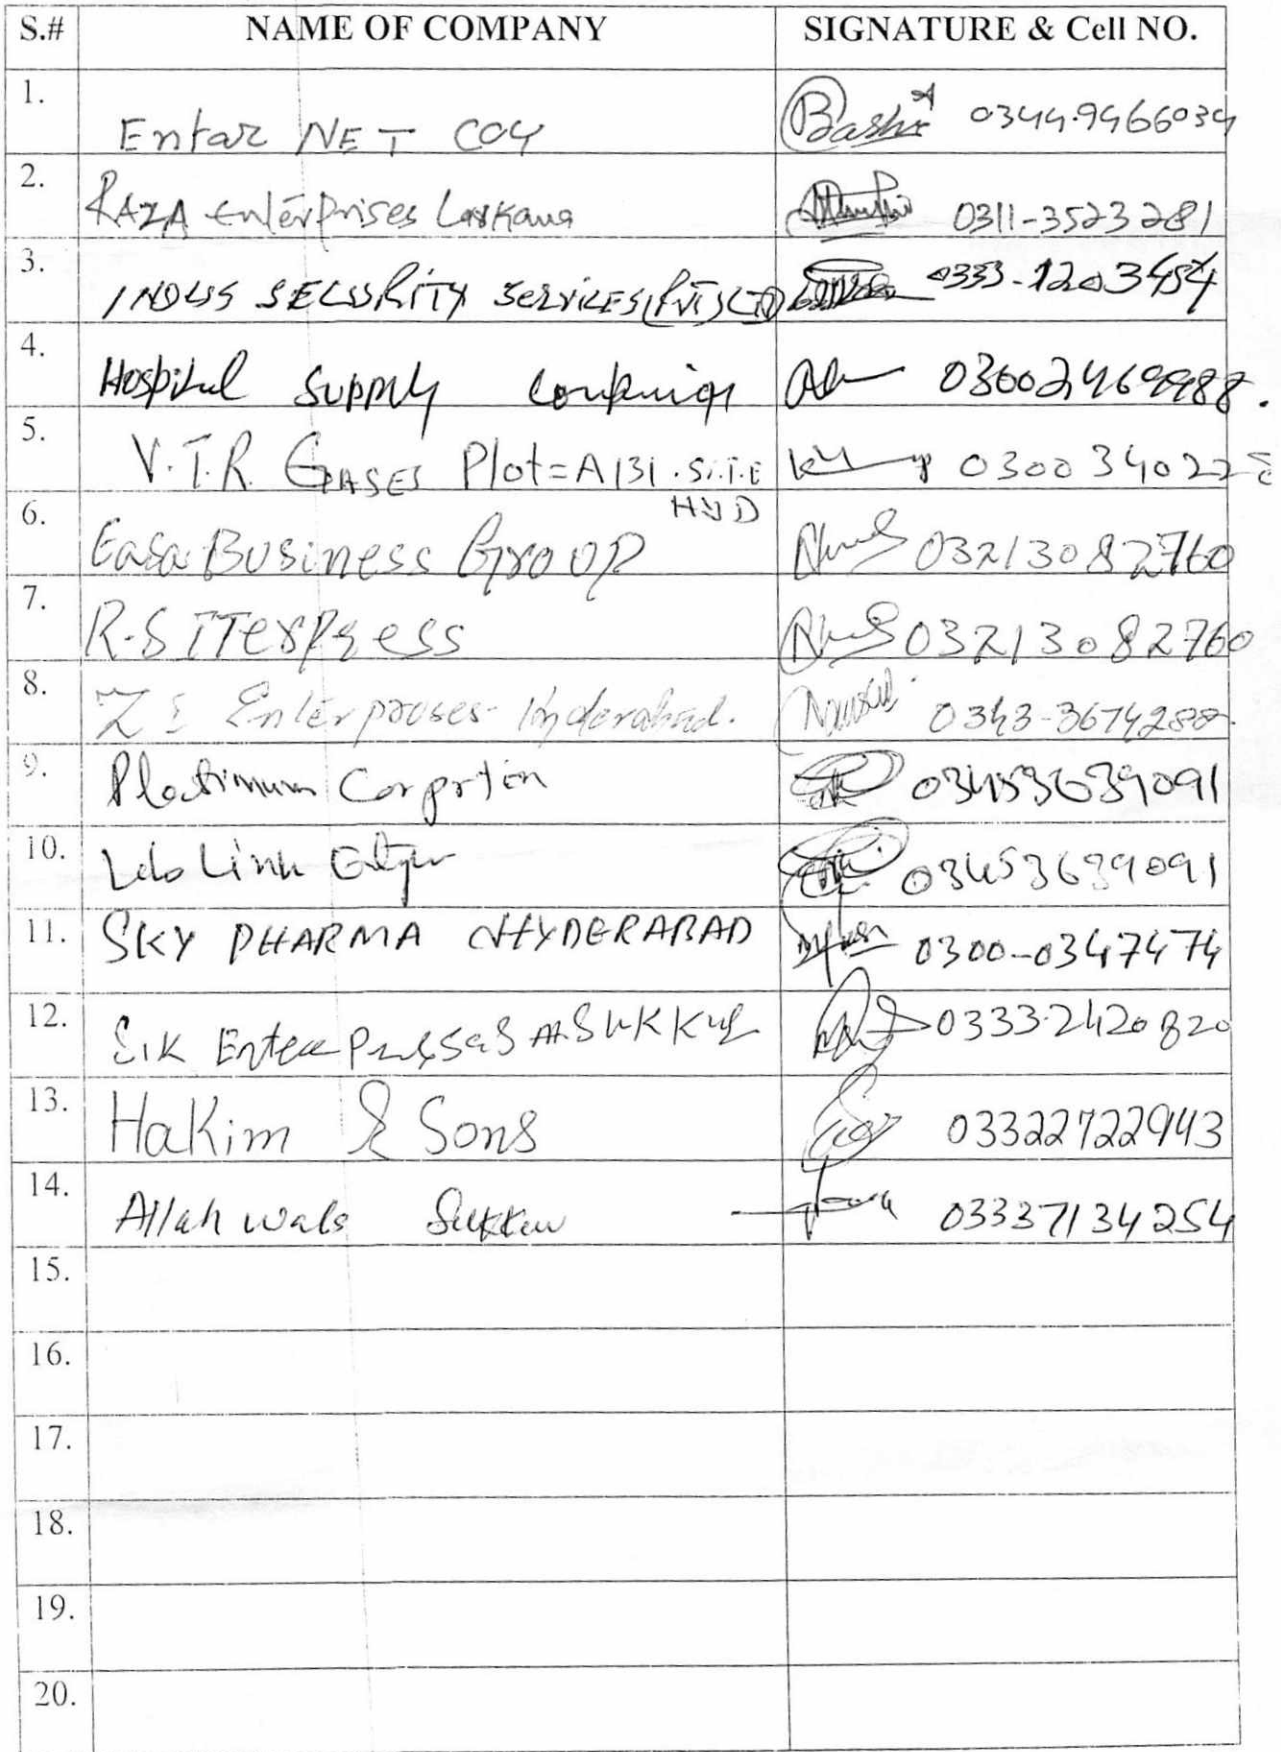 S.# NAME OF COMPANY SIGNATURE & Cell NO.
1. Entar NET COY Bashir 0344.9466034
2. RAZA Enterprises Larkana 0311-3523281
3. INDUS SECURITY SERVICES (PVT) LTD 0333-1203454
4. Hospital Supply 03002469988.
5. V.T.R. GASES Plot=A131.S.I.T.E 030034022
HYD
6. Easa Business Group 03213082760
7. R.S ITexpress 03213082760
8. Z I Enterprouses Hyderabad. 0343-3674288
9. Platinum Corprtion 03453639091
10. Link 03453639091
11. SKY PHARMA HYDERABAD 0300-0347474
12. SIK Sukkur 0333-2420820
13. Hakim & Sons 03322722943
14. Allah wala Sukkur 03337134254
15.
16.
17.
18.
19.
20.